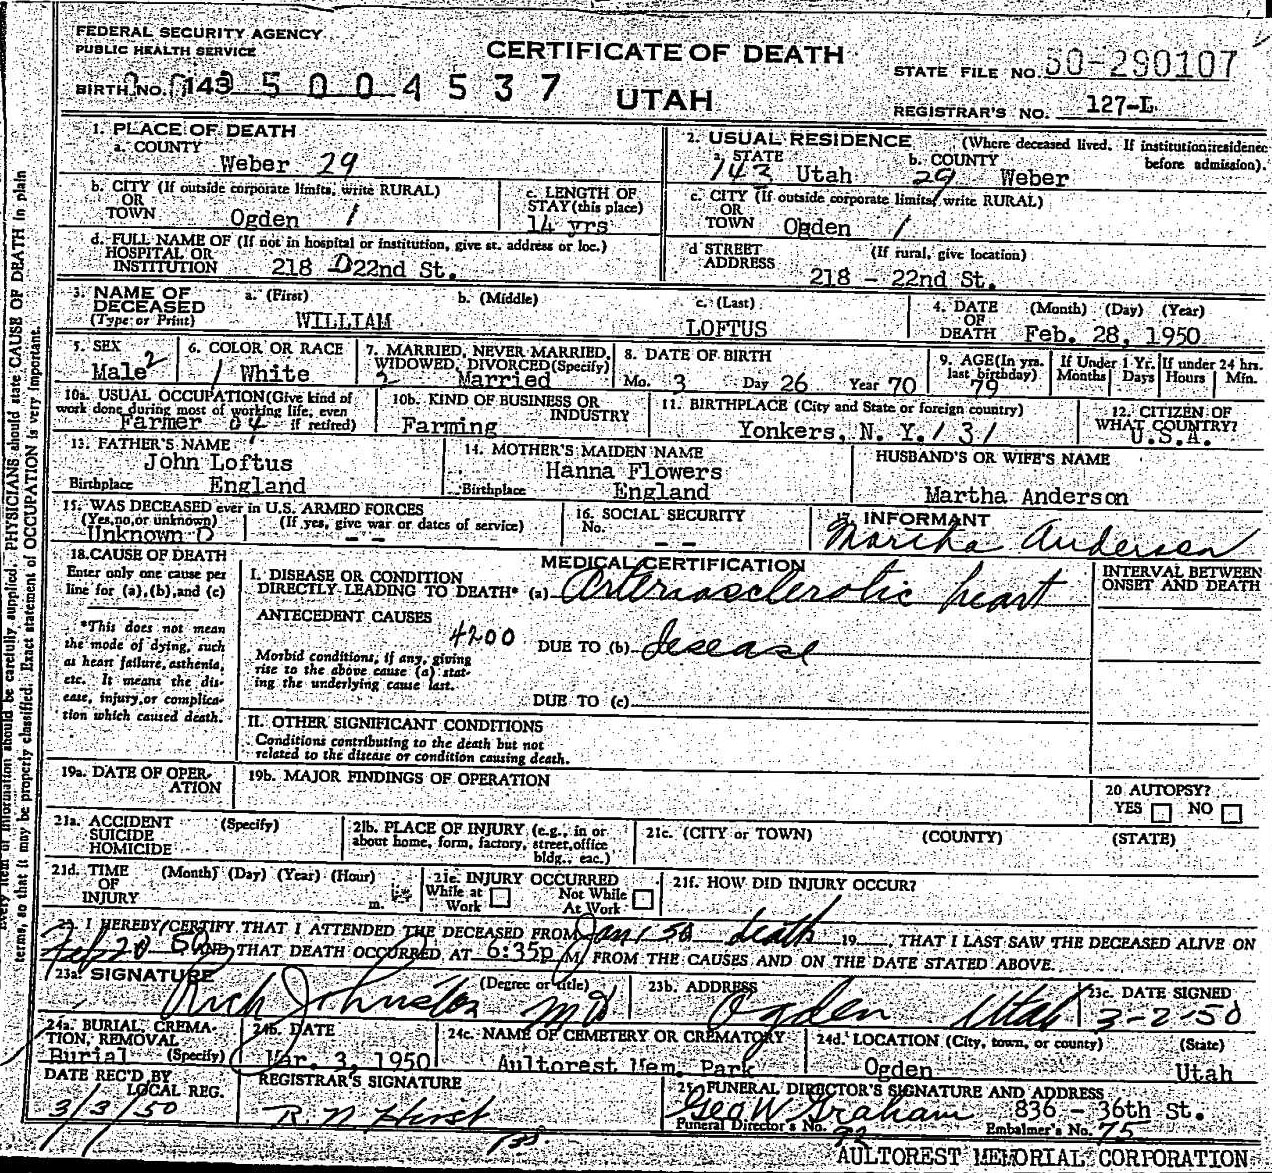 FEDERAL SECURITY AGENCY
PUBLIC HEALTH SERVICE
CERTIFICATE OF DEATH
STATE FILE NO. 50-290107
BIRTH NO. 143 5 0 0 4 5 3 7
UTAH
REGISTRAR'S NO. 127-L
1. PLACE OF DEATH
a. COUNTY
Weber 29
2. USUAL RESIDENCE (Where deceased lived. If institution: residence before admission).
a. STATE 143 Utah
b. COUNTY 29 Weber
b. CITY (If outside corporate limits, write RURAL)
OR TOWN Ogden 1
c. LENGTH OF STAY (this place)
14 yrs
c. CITY (If outside corporate limits, write RURAL)
OR TOWN Ogden 1
d. FULL NAME OF (If not in hospital or institution, give st. address or loc.)
HOSPITAL OR INSTITUTION 218 D 22nd St.
d STREET ADDRESS (If rural, give location)
218 - 22nd St.
3. NAME OF DECEASED
(Type or Print)
a. (First) WILLIAM
b. (Middle)
c. (Last) LOFTUS
4. DATE OF DEATH (Month) (Day) (Year)
Feb. 28, 1950
5. SEX
Male 2
6. COLOR OR RACE
1 White
7. MARRIED, NEVER MARRIED, WIDOWED, DIVORCED (Specify)
2 Married
8 DATE OF BIRTH
Mo. 3 Day 26 Year 70
9. AGE (In yrs. last birthday)
79
If Under 1 Yr. Months Days
If under 24 hrs. Hours Min.
10a. USUAL OCCUPATION (Give kind of work done during most of working life, even if retired)
Farmer
10b. KIND OF BUSINESS OR INDUSTRY
Farming
11. BIRTHPLACE (City and State or foreign country)
Yonkers, N. Y. 131
12. CITIZEN OF WHAT COUNTRY?
U.S.A.
13. FATHER'S NAME
John Loftus
Birthplace England
14. MOTHER'S MAIDEN NAME
Hanna Flowers
Birthplace England
HUSBAND'S OR WIFE'S NAME
Martha Anderson
15. WAS DECEASED ever in U.S. ARMED FORCES
(Yes, no, or unknown) (If yes, give war or dates of service)
Unknown 0 - -
16. SOCIAL SECURITY No.
- -
17. INFORMANT
Martha Anderson
18. CAUSE OF DEATH
Enter only one cause per line for (a), (b), and (c)
*This does not mean the mode of dying, such as heart failure, asthenia, etc. It means the disease, injury, or complication which caused death.
MEDICAL CERTIFICATION
INTERVAL BETWEEN ONSET AND DEATH
I. DISEASE OR CONDITION DIRECTLY LEADING TO DEATH* (a) Arteriosclerotic heart
ANTECEDENT CAUSES
4200
DUE TO (b) desease
Morbid conditions, if any, giving rise to the above cause (a) stating the underlying cause last.
DUE TO (c)
II. OTHER SIGNIFICANT CONDITIONS
Conditions contributing to the death but not related to the disease or condition causing death.
19a. DATE OF OPERATION
19b. MAJOR FINDINGS OF OPERATION
20 AUTOPSY?
YES NO
21a. ACCIDENT SUICIDE HOMICIDE (Specify)
21b. PLACE OF INJURY (e.g., in or about home, form, factory, street, office bldg., eac.)
21c. (CITY or TOWN) (COUNTY) (STATE)
21d. TIME OF INJURY (Month) (Day) (Year) (Hour) m.
21e. INJURY OCCURRED
While at Work Not While At Work
21f. HOW DID INJURY OCCUR?
22. I HEREBY CERTIFY THAT I ATTENDED THE DECEASED FROM Jan 1 50 death 19 , THAT I LAST SAW THE DECEASED ALIVE ON
Feb 20 50 AND THAT DEATH OCCURRED AT 6:35p M, FROM THE CAUSES AND ON THE DATE STATED ABOVE.
23a. SIGNATURE (Degree or title)
Rich Johnston MD
23b. ADDRESS
Ogden Utah
23c. DATE SIGNED
3-2-50
24a. BURIAL, CREMATION, REMOVAL (Specify)
Burial
24b. DATE
Mar. 3, 1950
24c. NAME OF CEMETERY OR CREMATORY
Aultorest Mem. Park
24d. LOCATION (City, town, or county) (State)
Ogden Utah
DATE REC'D BY LOCAL REG.
3/3/50
REGISTRAR'S SIGNATURE
R. N. Hirst
25. FUNERAL DIRECTOR'S SIGNATURE AND ADDRESS
Geo W. Graham 836 - 36th St.
Funeral Director's No. 92 Embalmer's No. 75
AULTOREST MEMORIAL CORPORATION
item of information should be carefully supplied. PHYSICIANS should state CAUSE OF DEATH in plain
terms, so that it may be properly classified. Exact statement of OCCUPATION is very important.